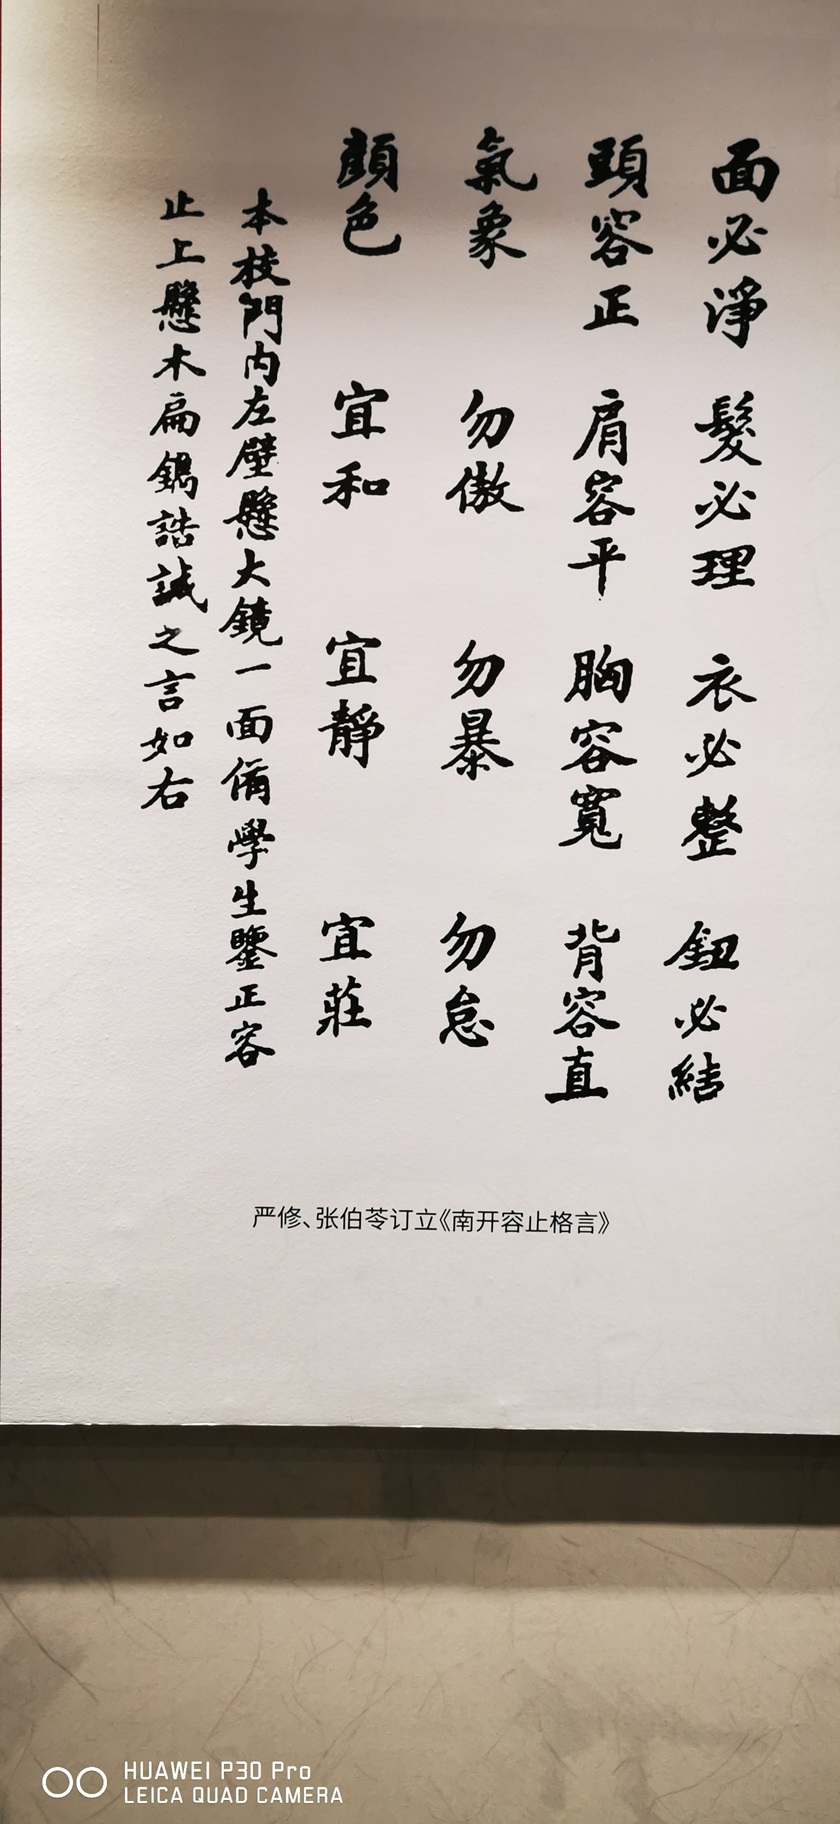 面必淨 髮必理 衣必整 鈕必結
頭容正 肩容平 胸容寬 背容直
氣象 勿傲 勿暴 勿怠
顏色 宜和 宜靜 宜莊
本校門內左壁懸大鏡一面備學生鑒正容
止上懸木扁鐫誥誡之言如右
严修、张伯苓订立《南开容止格言》
HUAWEI P30 Pro
LEICA QUAD CAMERA